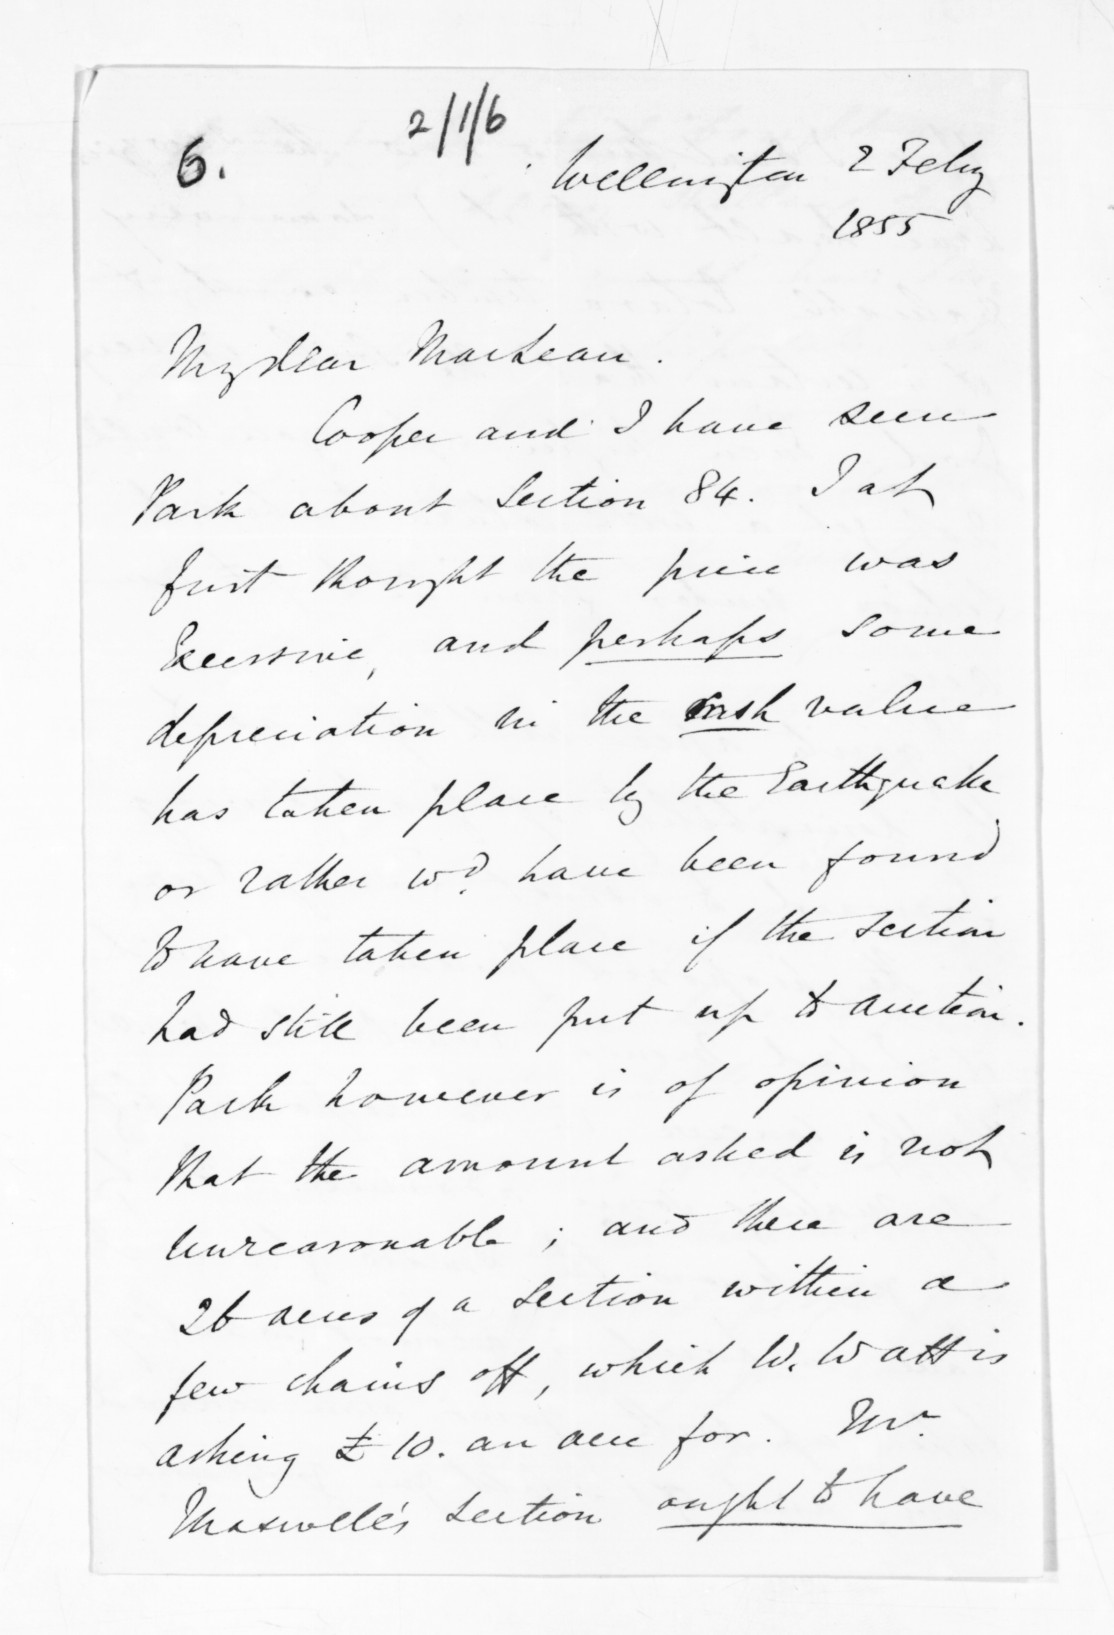 2/1/6
6.
Wellington 2 Feby
1855
My dear MacLean.
Cooper and I have seen
Park about Section 84. I at
first thought the price was
Excessive, and perhaps some
depreciation in the cash value
has taken place by the Earthquake
or rather wd. have been found
to have taken place if the section
had still been put up to auction.
Park however is of opinion
that the amount asked is not
unreasonable; and there are
26 acres of a section within a
few chains off, which W. Watt is
asking £10. an acre for. Mr.
Maxwell's section ought to have